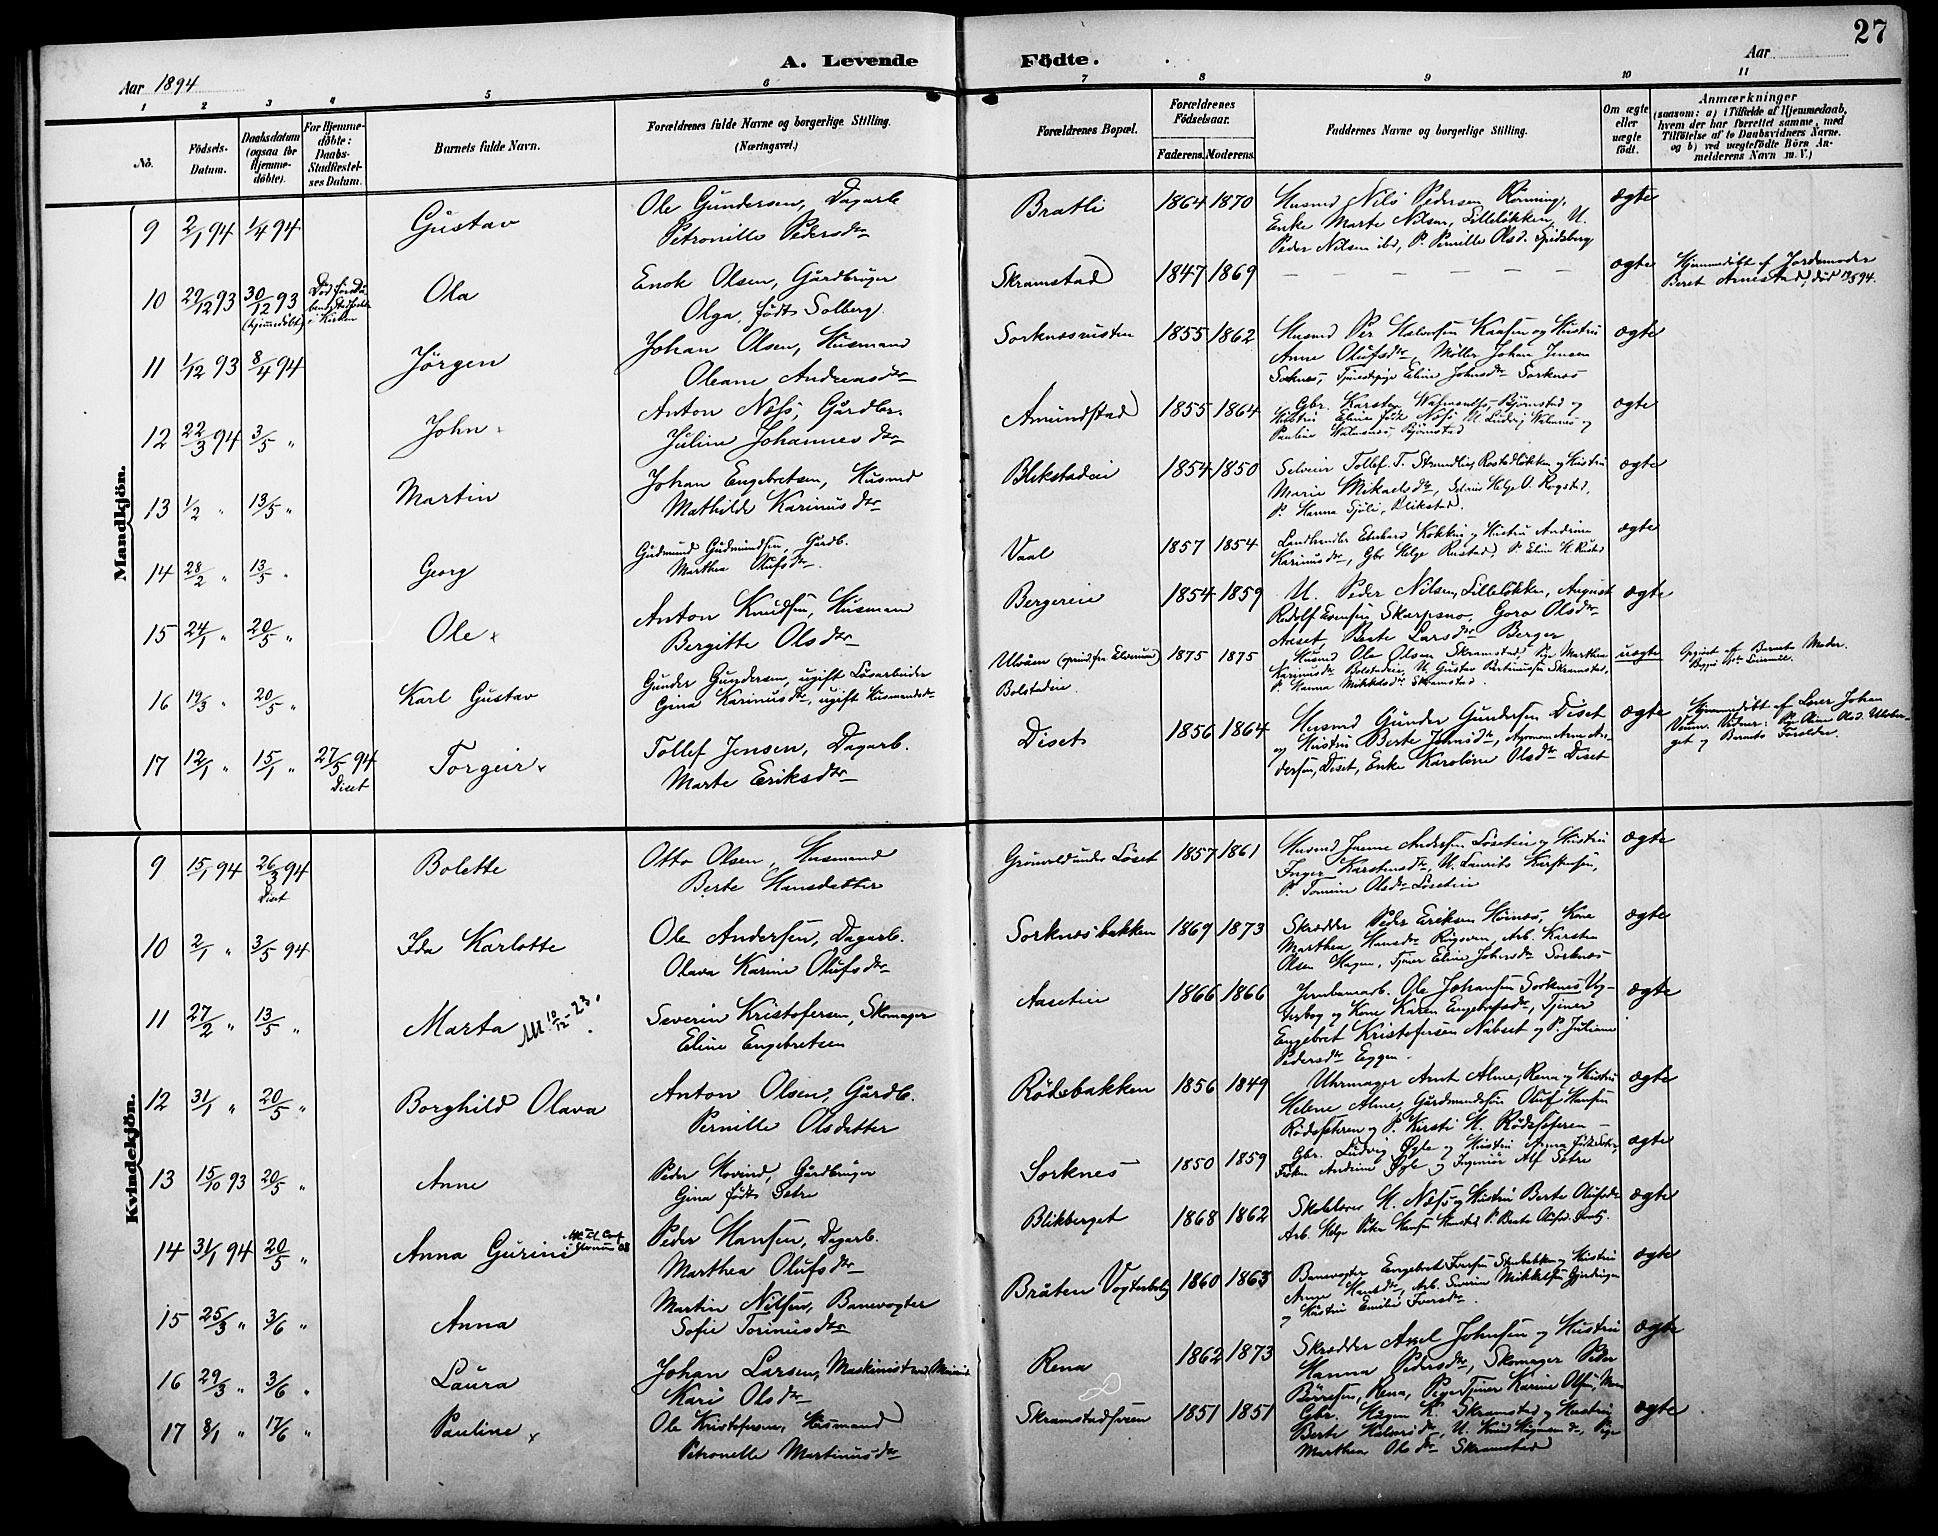 27
A. Levende Födte.
Aar 1894
Aar
1 2 3 4 5 6 7 8 9 10 11
No.
Födsels-Datum.
Daabsdatum (ogsaa for Hjemme-döbte).
For Hjemme-döbte: Daabs-Stadfæstel-ses Datum.
Barnets fulde Navn.
Forældrenes fulde Navne og borgerlige Stilling.
(Næringsvei.)
Forældrenes Bopæl.
Forældrenes Födselsaar.
Faderens. Moderens.
Faddernes Navne og borgerlige Stilling.
Om ægte eller uægte født.
Anmærkninger
(saasom: a) i Tilfælde af Hjemmedaab,
hvem der har forrettet samme, med
Tilföielse af to Daabsvidners Navne.
og b) ved uægtefödte Börn An-
melderens Navn m. V.)
Mandkjön.
9 2/1 94 1/4 94 Gustav
Ole Gundersen, Dagarb
Petronille Pedersdtr
Bratli 1864 1870
Husmd Nils Pedersen Rönning,
Enke Marte Nilsen, Lillelökken, U.
Peder Nilsen ibd, P. Pernille Olsd. Spidsberg
ægte
10 29/12 93 30/12 93 (hjemmedöbt) Ola
Enok Olsen, Gårdbruger
Olga, födt Solberg.
Skramstad 1847 1869
— — — — — —
ægte
Hjemmedöbt af Jordemoder
Beret Arnestad, död
11 1/12 93 8/4 94 Jörgen
Johan Olsen, Husmand
Oleane Andreasdtr
Sorknæsrusten 1855 1862
Husmd Per Halvorsen Kaasen og Hustru
Anne Olufsdtr, Møller Johan Jensen
Sorknæs, Tjenestepige Eline Johnsdtr Sorknæs
ægte
12 22/3 94 3/5 " John
Anton Næss, Gårdbr.
Juline Johannesdtr
Amundstad 1855 1864
Gbr. Karsten Bjørnstad og
Hustru Eline født Næss, U. Ludvig
Pauline Bjørnstad
ægte
13 1/2 " 13/5 " Martin
Johan Engebretsen, Husmd
Mathilde Karinusdtr
Blikstadeie 1854 1850
Selveier Tollef T. Strandlie, Rostadlökken og Hustru
Marie Mikaelsdtr, Helge O. Rogstad,
P. Hanna Blikstad.
ægte
14 28/2 " 13/5 " Georg
Gudmund Gudmundsen, Gårdb.
Marthea Olufsdtr.
Vaal 1857 1854
Landhandler Kokkin og Hustru Andrine
Karinusdtr, Gbr Helge Rustad, P. Eline H. Rustad
ægte
15 24/1 " 20/5 " Ole
Anton Knudsen, Husman
Bergitte Olsdtr
Bergereie 1854 1859
U. Peder Nilsen, Lillelökken, August
Rudolf Evensen Skarpsno, Goro Olsdtr
Aaset, Berte Larsdtr Berger
ægte
16 19/3 " 20/5 " Karl Gustav
Gunder Gundersen, ugift Lösarbeider
Gina Karinusdtr, ugift Husmandsdtr
Ulvåen (opvind. fra Elverum)
Bolstadeie 1875 1875
Husmd Ole Olsen Skramstad, Pige Marthea
Karinusdtr Bolstadeie, U. Gustav Bertinussen Skramstad,
P. Hanna Mikkelsdtr Skramstad.
uægte
Opgivet af Barnets Moder.
17 12/1 " 15/1 " 27/5 94 Diset Torgeir
Tollef Jensen, Dagarb.
Marte Eriksdtr
Diset 1856 1864
Husmd Gunder Gundersen Diset
og Hustru Berte Johnsdtr, Arne An-
dersen, Diset, Enke Karoline Olsdtr Diset
ægte
Hjemmedöbt af Lærer Johan
Vidner: Pige Oline Olsd. Ulvber-
get og Barnets Forældre.
Kvindekjön.
9 15/1 94 26/3 94 Diset Bolette
Otto Olsen, Husmand
Berte Hansdatter
Grönvold under Löset 1857 1861
Husmd Andersen Löseteie og Hustru
Inger Karstensdtr, U. Laurits Karstensen,
P. Tomine Olsdtr Löseteie
ægte
10 2/1 " 3/5 94 Ida Karlotte
Ole Andersen, Dagarb.
Olava Karine Olufsdtr
Sorknæsbakken 1869 1873
Skrædder Peder Eriksen Hornæs, Kone
Marthea Hansdtr Rogsveen, Arb. Karsten
Olsen Hagen, Tjener Eline Johnsdtr Sorknæs
ægte
11 27/2 " 13/5 " Marta Att. 10/12-23.
Severin Kristofersen, Skomager
Eline Engebretsen
Aaseteie 1866 1866
Jernbanearb. Ole Johansen Sorknæs Vog-
terbog og Kone Karen Engebretsdtr, Tjener
Engebret Kristofersen Nabset og P. Juliane
Pedersdtr Eggen.
ægte
12 31/1 " 20/5 " Borghild Olava
Anton Olsen, Gårdb.
Pernille Olsdatter
Rödsbakken 1856 1849
Uhrmager Arnt Alme, Rena og Hustru
Helene Alme, Gårdmandssön Oluf Hansen
Rödsæteren og P. Kersti H. Rödsæteren
ægte
13 15/10 93 20/5 " Anne
Peder Hovind, Gårdbruger
Gina födt Sætre
Sorknes 1850 1859
Gbr. Ludvig og Hustru Anna
Frøken Andrine og Ingeniør Alf Sætre
ægte
14 31/1 94 20/5 " Anna Gurine
Peder Hansen, Dagarb.
Marthea Olufsdtr
Blikberget 1868 1862
Skolelærer H. Næss og Hustru Berte Olufsdtr
Arb. Helge Hansen P. Berte Olufsd.
ægte
15 25/3 " 3/6 " Anna
Martin Nilsen, Banevogter
Sofie Torinusdtr
Bråten Vogterbolig 1860 1863
Banevogter Engebret Iversen Stenbakken og Hustru
Anne Hansdtr, Arb. Severin Mikkelsen Gjerdingen
og Hustru Emilie Iversdtr
ægte
16 29/3 " 3/6 " Laura
Johan Larsen, Maskinist
Kari Olsdtr
Rena 1862 1873
Skrædder Axel Johnsen og Hustru
Hanna Pedersdtr, Skomager Peder
Börresen, Rena, Pige Tjener Karine Olsen,
ægte
17 8/1 " 17/6 " Pauline
Ole Kristofersen, Husmand
Petronelle Martinusdtr
Skramstadsveen 1851 1851
Gbr. Hågen K. Skramstad og Hustru
Berte Halvorsdtr, U. Knud Pige
Marthea Olsdtr Skramstad
ægte